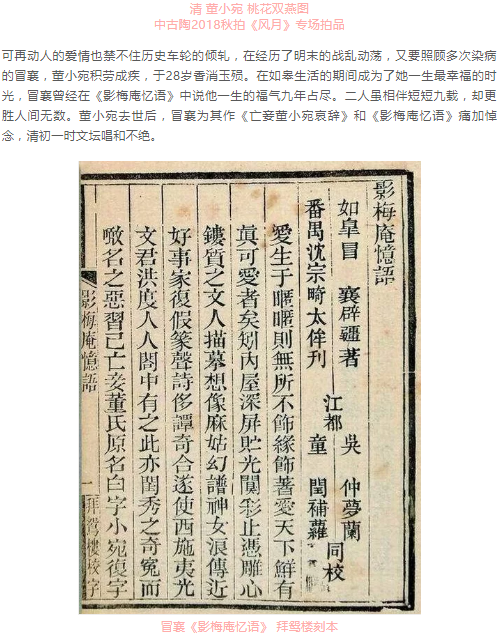 清 董小宛 桃花双燕图
中古陶2018秋拍《风月》专场拍品
可再动人的爱情也禁不住历史车轮的倾轧，在经历了明末的战乱动荡，又要照顾多次染病
的冒襄，董小宛积劳成疾，于28岁香消玉殒。在如皋生活的期间成为了她一生最幸福的时
光，冒襄曾经在《影梅庵忆语》中说他一生的福气九年占尽。二人虽相伴短短九载，却更
胜人间无数。董小宛去世后，冒襄为其作《亡妾董小宛哀辞》和《影梅庵忆语》痛加悼
念，清初一时文坛唱和不绝。
影梅庵憶語
如皐冒　襄辟疆著　吳　仲夢蘭
番禺沈宗畸太侔刊　江都　童　閏補蘿　同校
愛生于暱暱則無所不飾緣飾著愛天下鮮有
眞可愛者矣矧內屋深屏貯光闃彩止憑雕心
鏤質之文人描摹想像麻姑幻譜神女浪傳近
好事家復假篆聲詩侈譚奇合遂使西施夷光
文君洪度人人閤中有之此亦閨秀之奇冤而
噉名之惡習已亡妾董氏原名白字小宛復字
影梅庵憶語
一
拜鴛樓校字
冒襄《影梅庵忆语》 拜鸳楼刻本